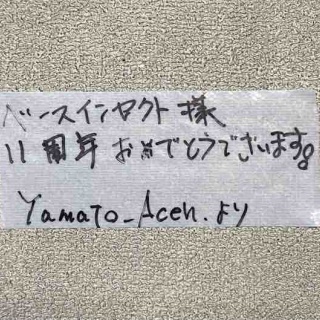 ベースインセクト様
11周年おめでとうございます。
Yamato_Aceh.より